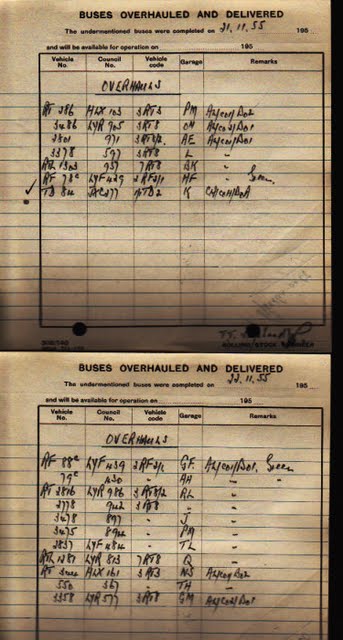 BUSES OVERHAULED AND DELIVERED
The undermentioned buses were completed on 21.11.55 195
and will be available for operation on 195
Vehicle No. Council No. Vehicle code Garage Remarks
OVERHAULS
RT 286 HLX 103 3RT3 PM
3486 LYR 905 3RT8 ON
2801 971 3RT8/2 AE
3378 597 3RT8 L "
RTL 1303 937 7RT8 BK "
RF 78c LYF 429 2RF2/1 HF " Green
TD 84 JXC277 1/TD2 K
ROLLING STOCK ENGINEER
BUSES OVERHAULED AND DELIVERED
The undermentioned buses were completed on 22.11.55 195
and will be available for operation on 195
Vehicle No. Council No. Vehicle code Garage Remarks
OVERHAULS
RF 88c LYF 439 2RF2/1 GF. Green
79c 430 " AA " "
RT 2816 LYR 986 3RT8/2 RL "
2778 942 3RT8 "
3478 897 " J "
3475 894 " PM "
2837 LYF 484 " TL "
RTL 1281 LYR 813 7RT8 Q "
RT HLX 161 3RT3 NS
550 367 " TH "
3358 LYR 577 3RT8 GM